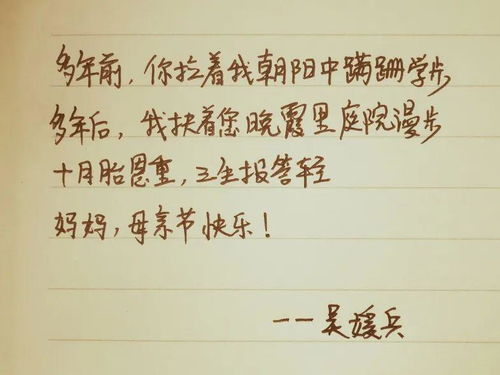 多年前，你拉着我朝阳中蹒跚学步
多年后，我扶着您晚霞里庭院漫步
十月胎恩重，三生报答轻
妈妈，母亲节快乐！
——吴媛兵